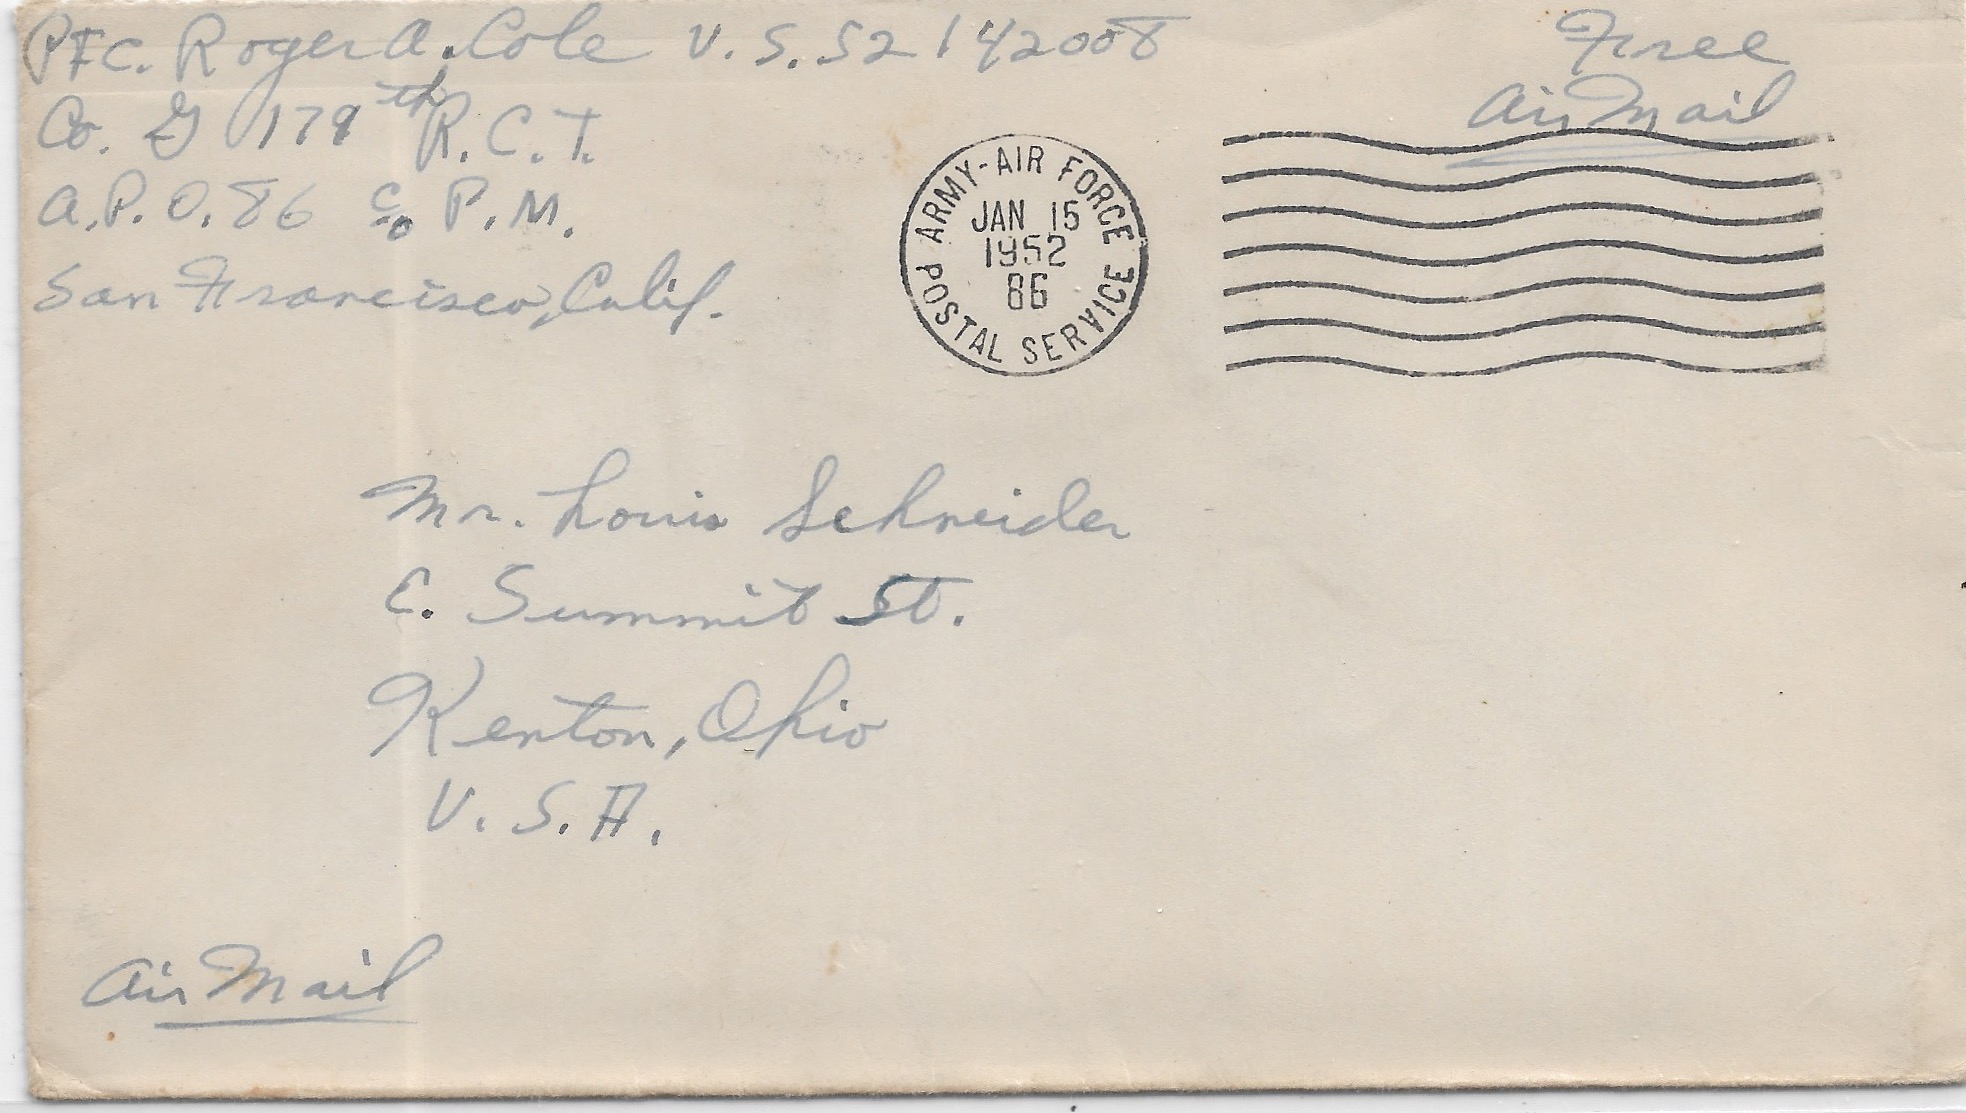 PFC. Roger A. Cole U.S. 52142008
Co. G 179th R.C.T.
A.P.O. 86 c/o P.M.
San Francisco, Calif.
Free
Air Mail
ARMY-AIR FORCE
JAN 15
1952
86
POSTAL SERVICE
Mr. Louis Schneider
E. Summit St.
Kenton, Ohio
U.S.A.
Air Mail